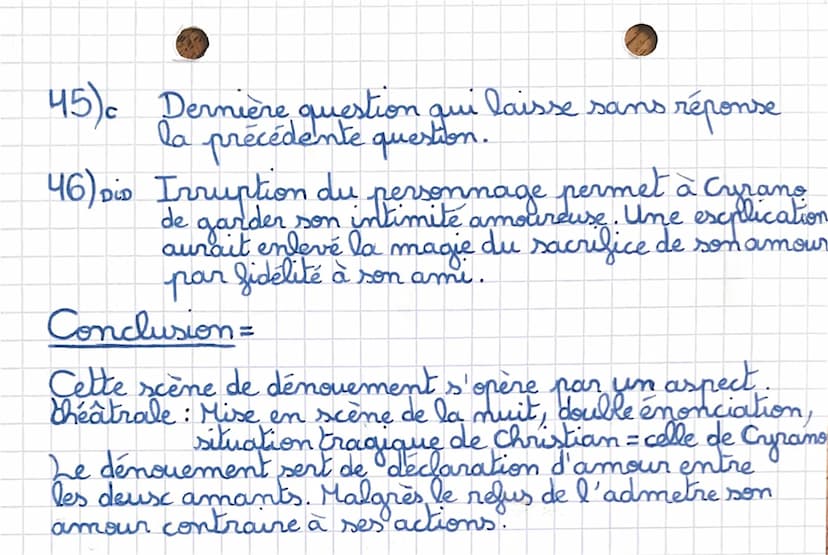 45)c Dernière question qui laisse sans réponse
la précédente question.
46) DID Irruption du personnage permet à Cyrano
de garder son intimité amoureuse. Une escplication
aurait enlevé la magie du sacrifice de son amour
par fidélité à son ami.
Conclusion =
Cette scène de dénouement s'opère par un aspect.
théâtrale : Mise en scène de la nuit, double énonciation,
situation tragique de Christian = celle de Cyrano
Le dénouement sert de déclaration d'amour entre
les deusc amants. Malgrès le refus de l'admetre son
amour contraire à ses actions.